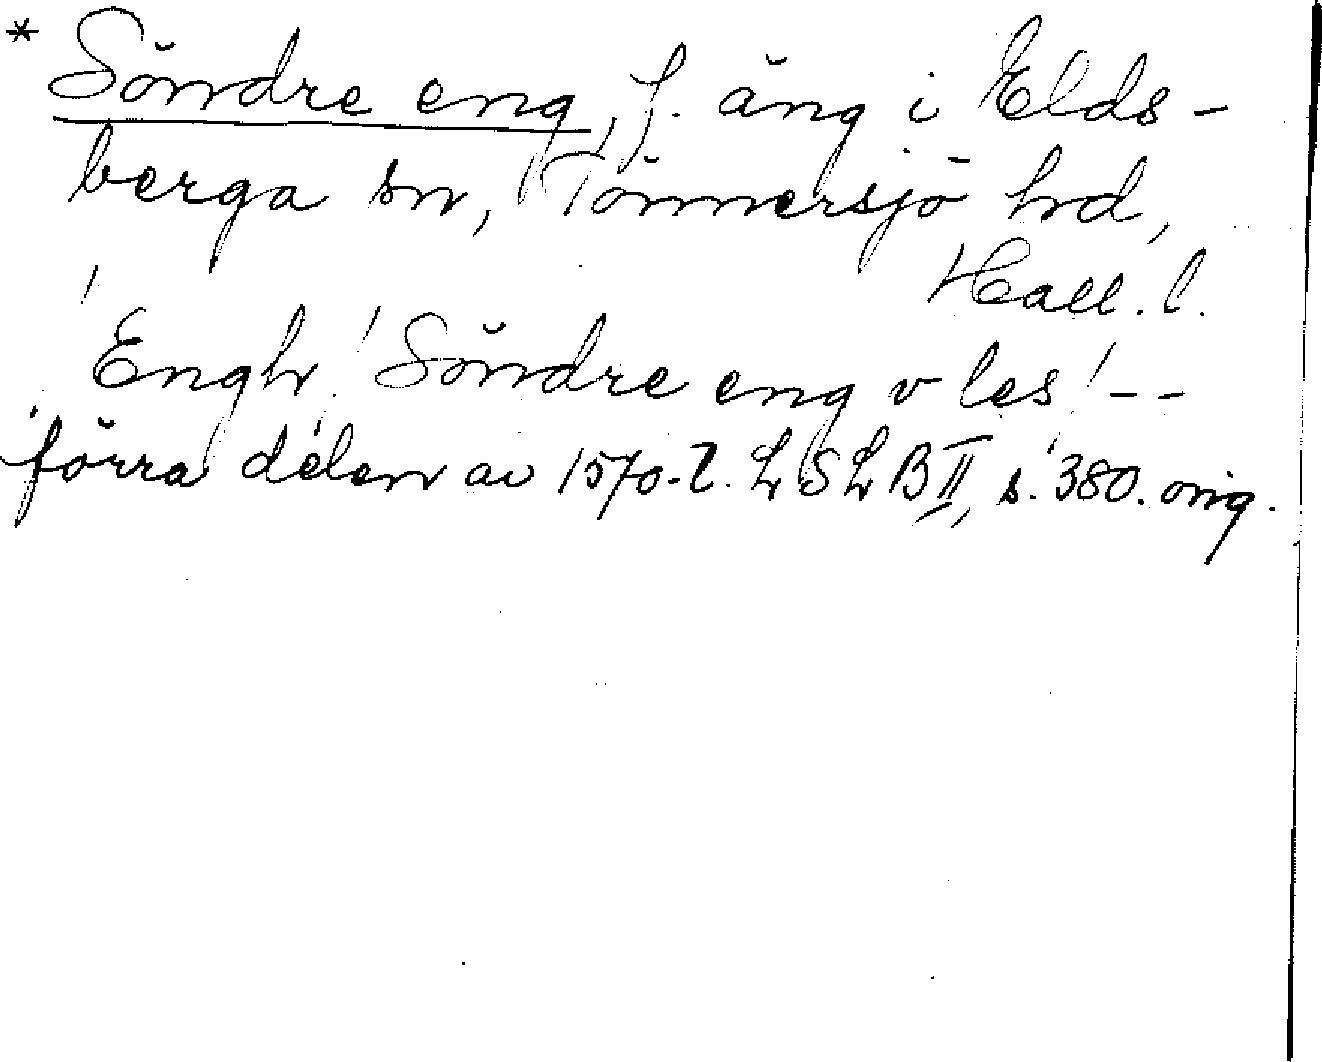 * Söndre eng, f. äng i Elds-
berga sn, Tönnersjö hd,
Hall. l.
'Engh' 'Söndre eng v les' --
förra delen av 1570-t. LSLB II, s. 380. orig.